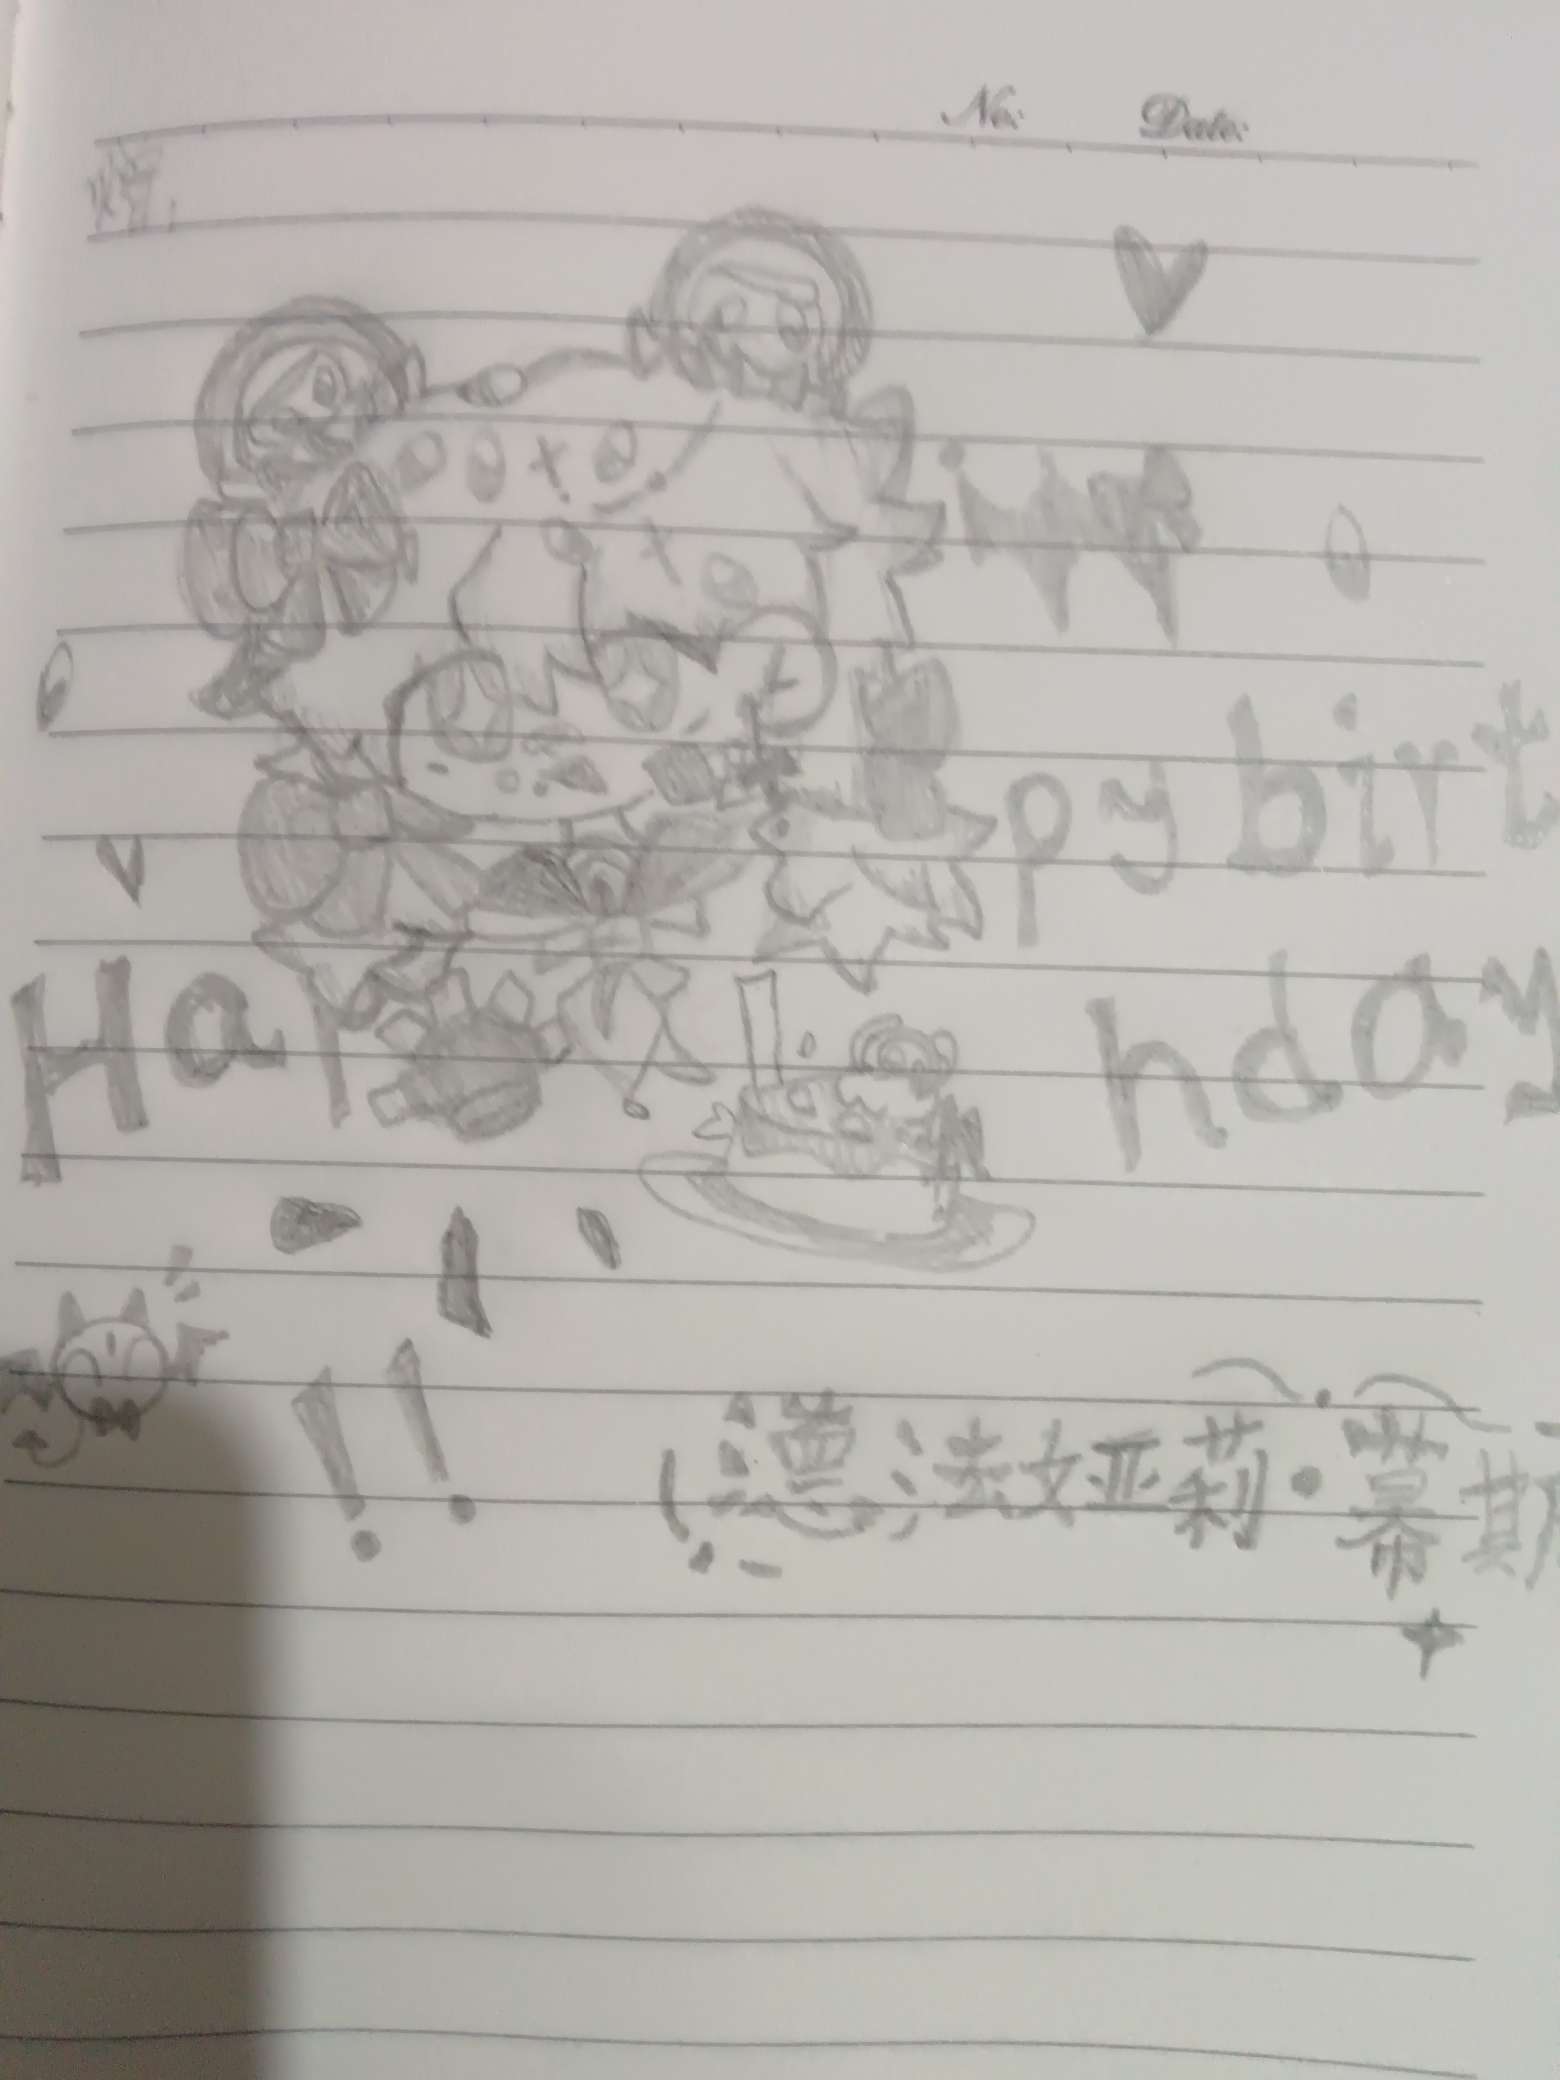 No: Date:
Happybirthday
!!
法娅莉·慕斯